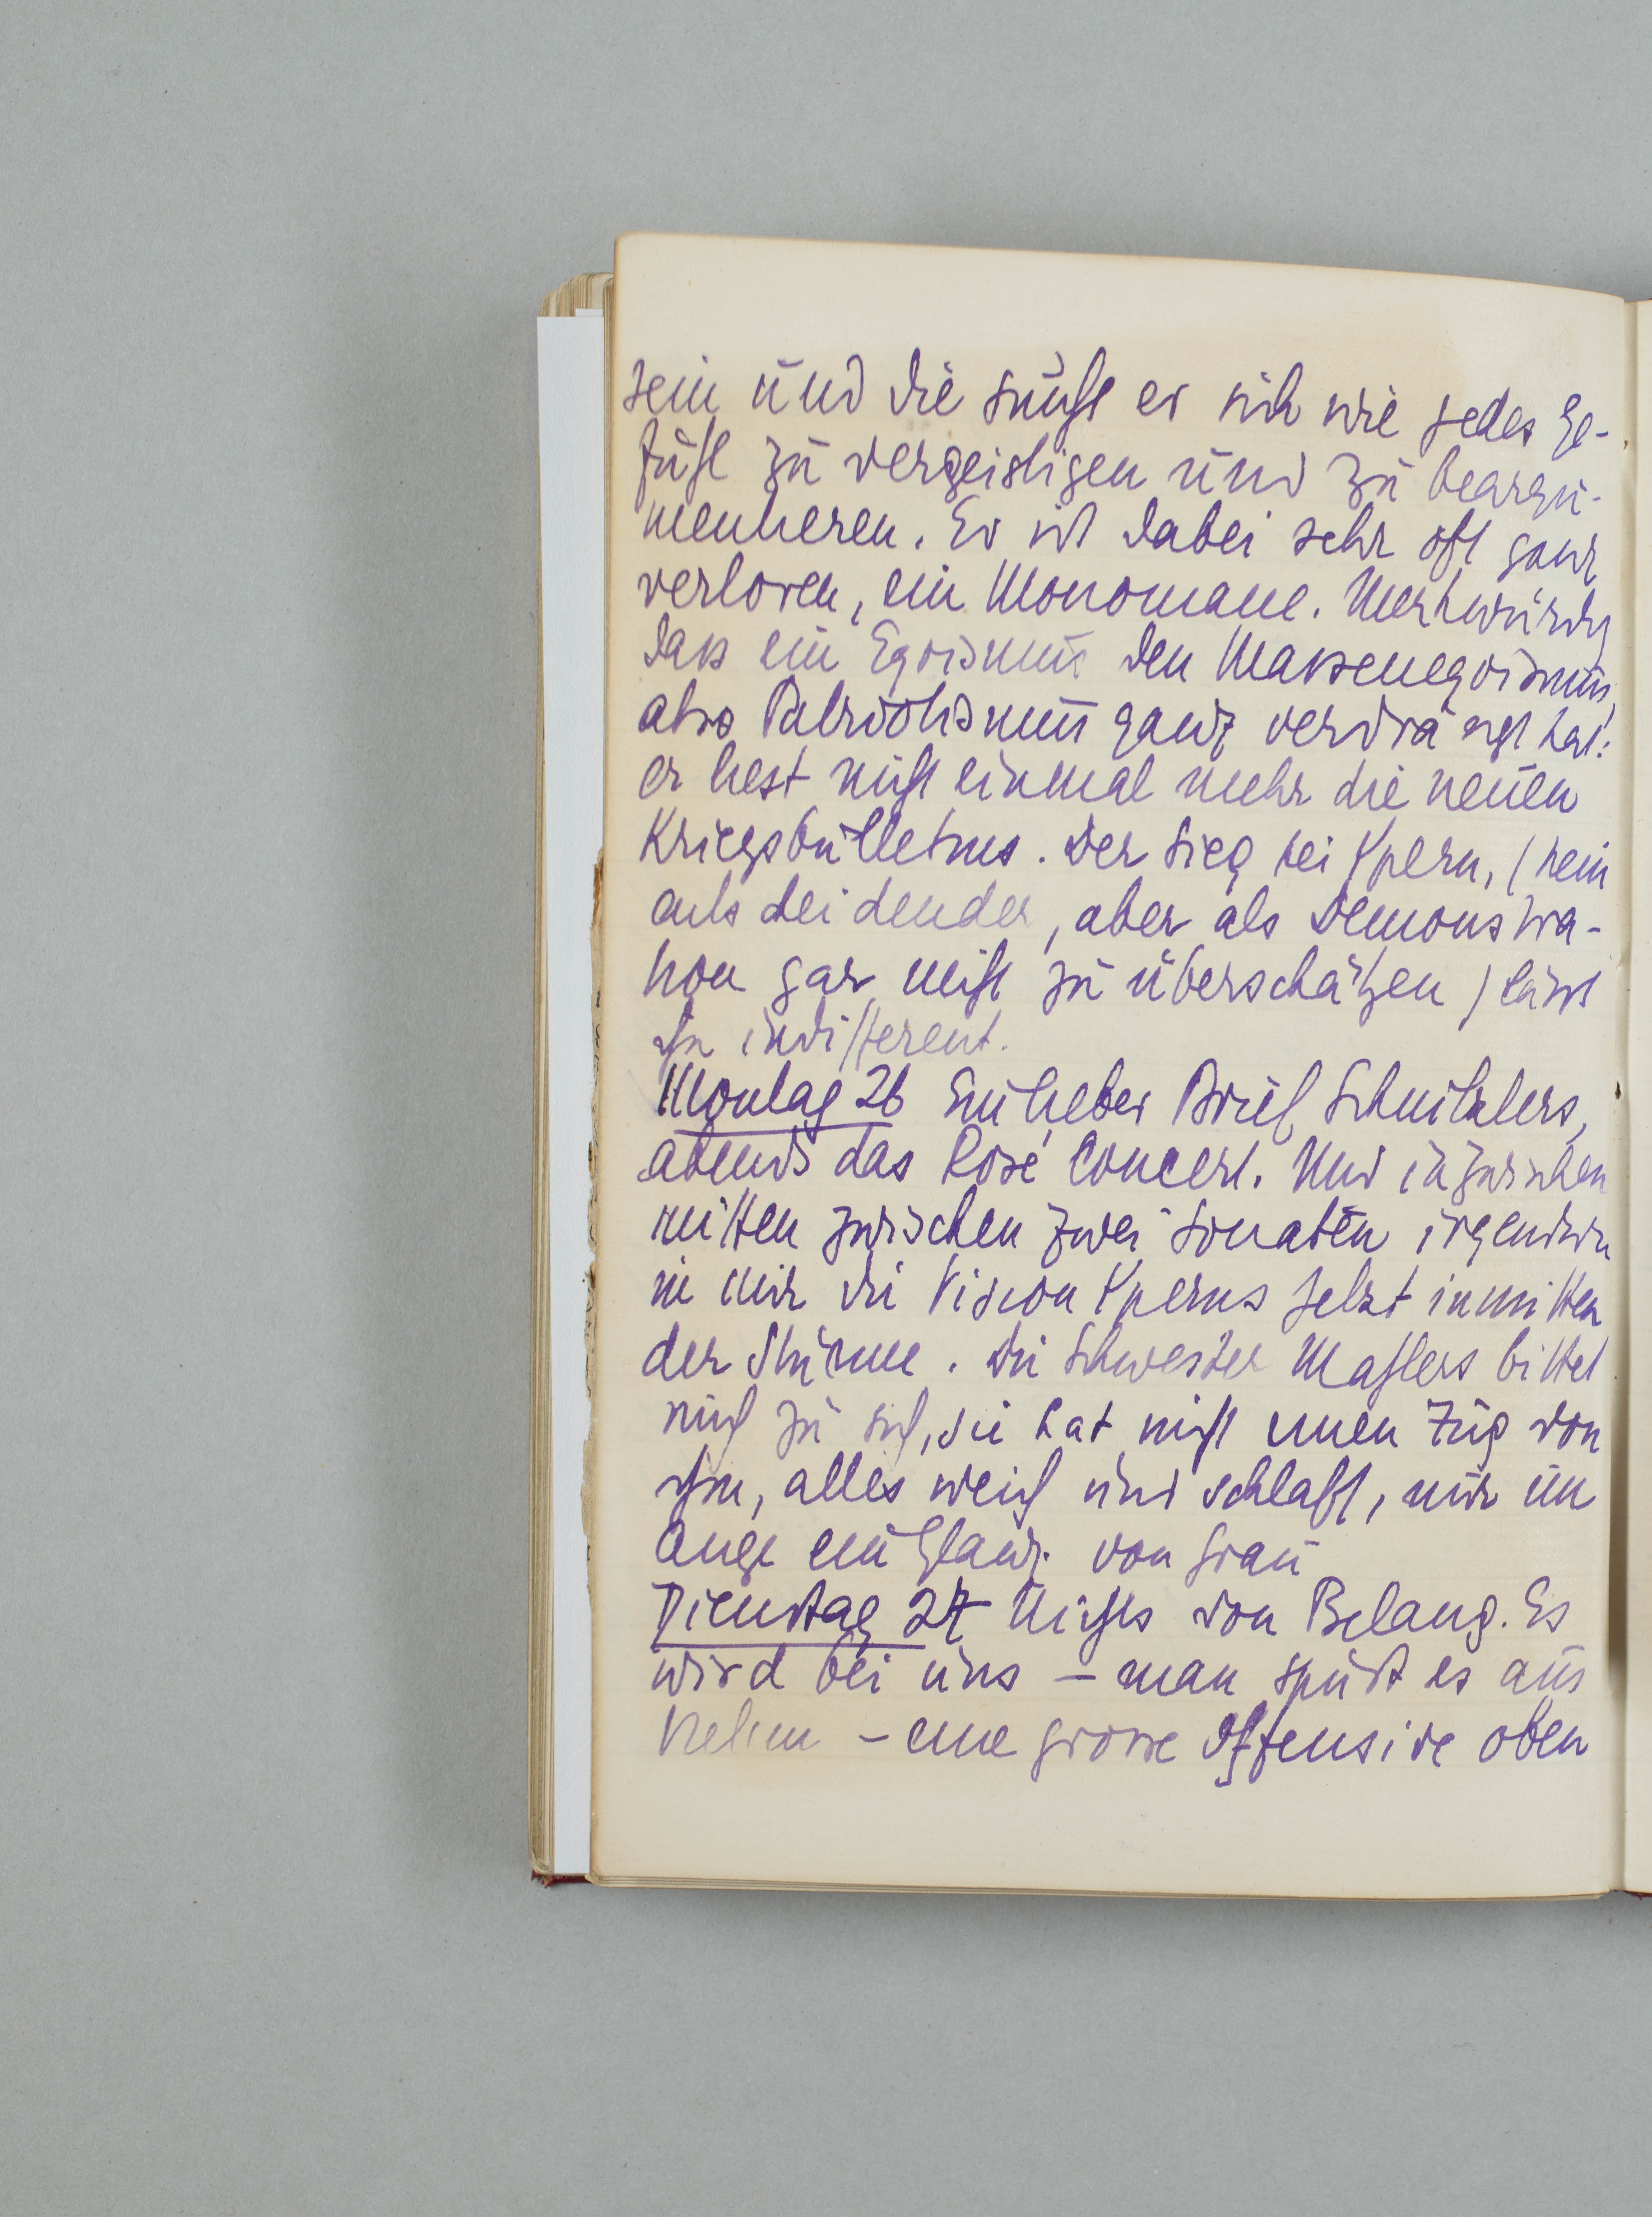 sein und die sucht er sich wie jedes Ge-
fühl zu vergeistigen und zu beargu-
mentieren. Er ist dabei sehr oft ganz
verloren, ein Monomane. Merkwürdig
dass ein Egoismus den Massenegoismus,
also Patriotismus ganz verdrängt hat:
er liest nicht einmal mehr die neuen
Kriegsbulletins. Der Sieg bei Ypern, (kein
entscheidender, aber als Demonstra-
tion gar nicht zu überschätzen) lässt
ihn indifferent.
Montag 26 Ein lieber Brief Schnitzlers,
abends das Rosé Concert. Und inzwischen
mitten zwischen zwei Sonaten irgendwie
in mir die Vision Yperns jetzt inmitten
der Stürme. Die Schwester Mahlers bittet
mich zu sich, sie hat nicht einen Zug von
ihm, alles weich und schlaff, nur im
Auge ein Glanz von Grau
Dienstag 27 Nichts von Belang. Es
wird bei uns – man spürt es aus
– eine grosse Offensive oben